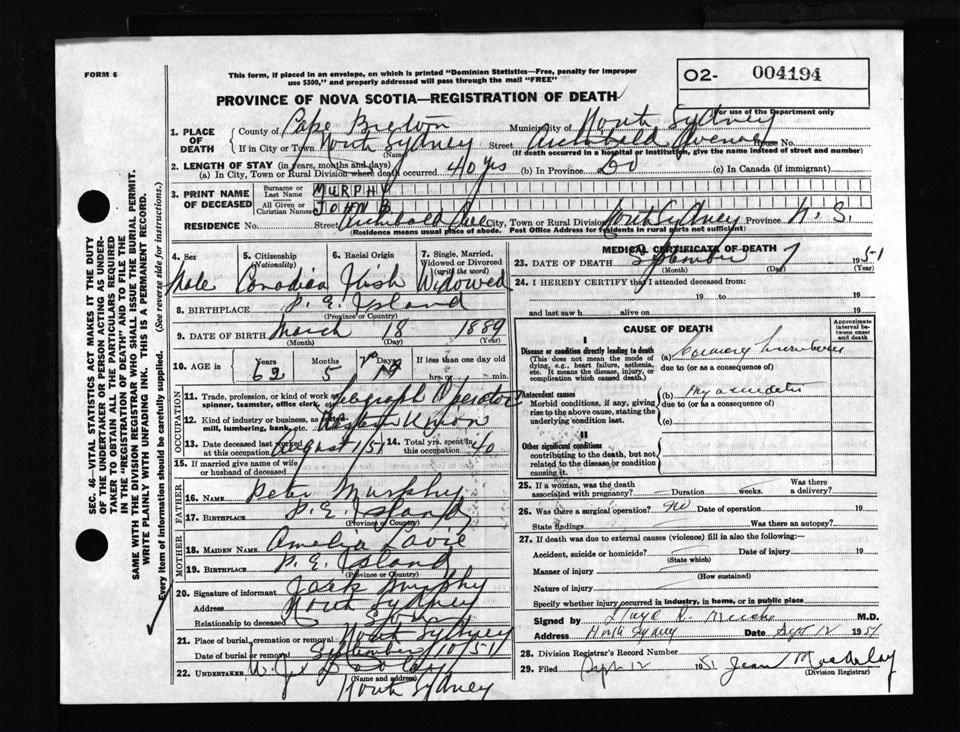 FORM 6
This form, if placed in an envelope, on which is printed "Dominion Statistics—Free, penalty for improper
use $300," and properly addressed will pass through the mail "FREE"
O2- 004194
For use of the Department only
PROVINCE OF NOVA SCOTIA—REGISTRATION OF DEATH
1. PLACE OF DEATH
County of Cape Breton Municipality of North Sydney
If in City or Town North Sydney Street Archibald Avenue House No.
(Name) (If death occurred in a hospital or institution, give the name instead of street and number)
2. LENGTH OF STAY (in years, months and days)
(a) In City, Town or Rural Division where death occurred 40 yrs (b) In Province 50 (c) In Canada (if immigrant)
3. PRINT NAME OF DECEASED
Surname or Last Name MURPHY
All Given or Christian Names JOHN B
RESIDENCE No. Street Archibald Ave City, Town or Rural Division North Sydney Province N.S.
(Residence means usual place of abode. Post Office Address for residents in rural parts not sufficient)
4. Sex
Male
5. Citizenship (Nationality)
Canadian
6. Racial Origin
Irish
7. Single, Married, Widowed or Divorced (write the word)
Widowed
8. BIRTHPLACE P. E. Island
(Province or Country)
9. DATE OF BIRTH March 18 1889
(Month) (Day) (Year)
10. AGE in Years Months Days If less than one day
62 5 hrs. or min.
OCCUPATION
11. Trade, profession, or kind of work as spinner, teamster, office clerk, Telegraph Operator
12. Kind of industry or business, as mill, lumbering, bank, etc. Western Union
13. Date deceased last worked at this occupation August 1/51 14. Total yrs. spent in this occupation 40
15. If married give name of wife or husband of deceased
FATHER
16. NAME Peter Murphy
17. BIRTHPLACE P. E. Island
(Province or Country)
MOTHER
18. MAIDEN NAME Amelia Lavie
19. BIRTHPLACE P. E. Island
(Province or Country)
20. Signature of informant Jack Murphy
Address North Sydney
Relationship to deceased Son
21. Place of burial, cremation or removal North Sydney
Date of burial or removal September 10/51
22. UNDERTAKER W. J. Dooley
(Name and address)
North Sydney
MEDICAL CERTIFICATE OF DEATH
23. DATE OF DEATH September 7 1951
(Month) (Day) (Year)
24. I HEREBY CERTIFY that I attended deceased from:
19 to 19
and last saw h alive on 19
CAUSE OF DEATH
Approximate interval between onset and death
I
Disease or condition directly leading to death (a) Coronary Thrombosis
(This does not mean the mode of dying, e.g., heart failure, asthenia, etc. It means the disease, injury, or complication which caused death.)
due to (or as a consequence of)
Antecedent causes (b) Myocarditis
Morbid conditions, if any, giving rise to the above cause, stating the underlying condition last.
due to (or as a consequence of)
(c)
II
Other significant conditions
contributing to the death, but not related to the disease or condition causing it.
25. If a woman, was the death associated with pregnancy? Duration weeks. Was there a delivery?
26. Was there a surgical operation? No Date of operation 19
State findings Was there an autopsy?
27. If death was due to external causes (violence) fill in also the following:—
Accident, suicide or homicide? Date of injury 19
(State which)
Manner of injury
(How sustained)
Nature of injury
Specify whether injury occurred in industry, in home, or in public place
Signed by M.D.
Address North Sydney Date Sept 12 1951
28. Division Registrar's Record Number
29. Filed Sept 12 1951 Jean
(Division Registrar)
SEC. 46—VITAL STATISTICS ACT MAKES IT THE DUTY
OF THE UNDERTAKER OR PERSON ACTING AS UNDER-
TAKER TO OBTAIN ALL THE PARTICULARS REQUIRED
IN THE "REGISTRATION OF DEATH" AND TO FILE THE
SAME WITH THE DIVISION REGISTRAR WHO SHALL ISSUE THE BURIAL PERMIT.
WRITE PLAINLY WITH UNFADING INK. THIS IS A PERMANENT RECORD.
Every item of information should be carefully supplied. (See reverse side for instructions.)